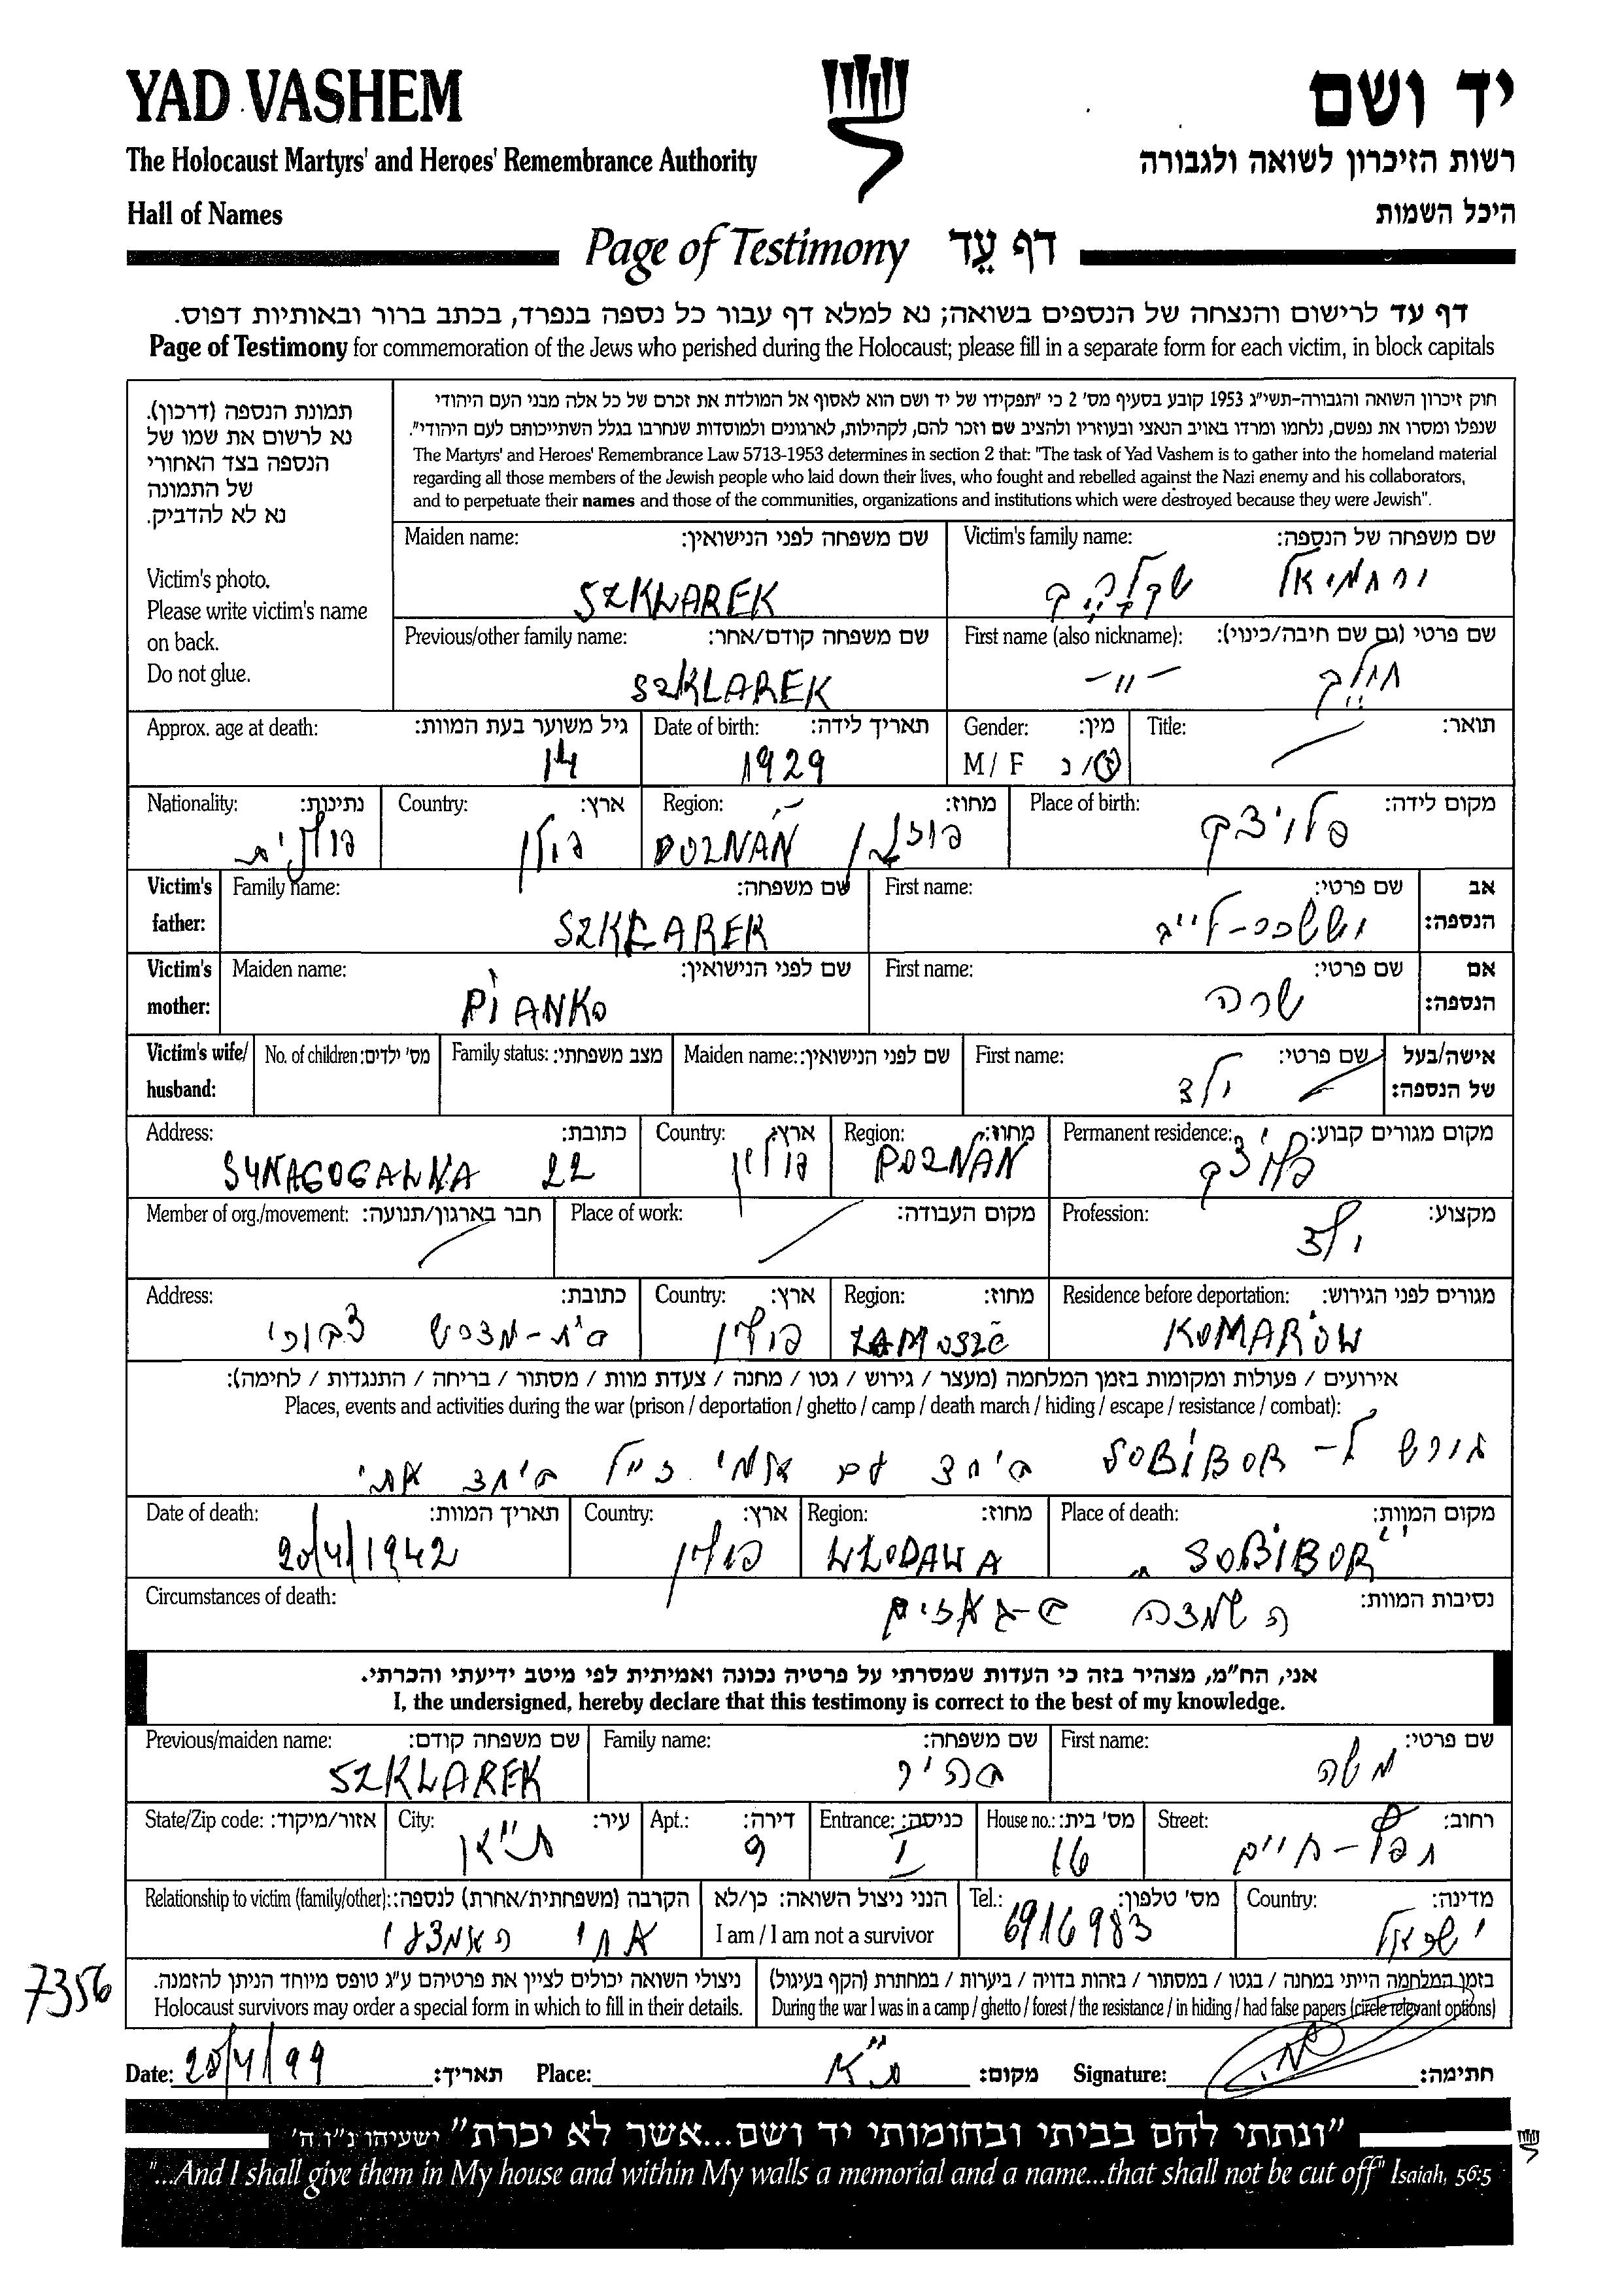 YAD VASHEM יד ושם
The Holocaust Martyrs' and Heroes' Remembrance Authority רשות הזיכרון לשואה ולגבורה
Hall of Names היכל השמות
Page of Testimony דף עֵד
דף עד לרישום והנצחה של הנספים בשואה; נא למלא דף עבור כל נספה בנפרד, בכתב ברור ובאותיות דפוס.
Page of Testimony for commemoration of the Jews who perished during the Holocaust; please fill in a separate form for each victim, in block capitals
תמונת הנספה (דרכון).
נא לרשום את שמו של
הנספה בצד האחורי
של התמונה
נא לא להדביק.
Victim's photo.
Please write victim's name
on back.
Do not glue.
חוק זיכרון השואה והגבורה-תשי"ג 1953 קובע בסעיף מס' 2 כי "תפקידו של יד ושם הוא לאסוף אל המולדת את זכרם של כל אלה מבני העם היהודי
שנפלו ומסרו את נפשם, נלחמו ומרדו באויב הנאצי ובעוזריו ולהציב שם וזכר להם, לקהילות, לארגונים ולמוסדות שנחרבו בגלל השתייכותם לעם היהודי".
The Martyrs' and Heroes' Remembrance Law 5713-1953 determines in section 2 that: "The task of Yad Vashem is to gather into the homeland material
regarding all those members of the Jewish people who laid down their lives, who fought and rebelled against the Nazi enemy and his collaborators,
and to perpetuate their names and those of the communities, organizations and institutions which were destroyed because they were Jewish".
Maiden name: שם משפחה לפני הנישואין: Victim's family name: שם משפחה של הנספה:
SZKLAREK
Previous/other family name: שם משפחה קודם/אחר: First name (also nickname): שם פרטי (גם שם חיבה/כינוי):
SZKLAREK -"-
Approx. age at death: גיל משוער בעת המוות: Date of birth: תאריך לידה: Gender: מין: Title: תואר:
14 1929 M / F ז/נ
Nationality: נתינות: Country: ארץ: Region: מחוז: Place of birth: מקום לידה:
פולנית פולין POZNAŃ / פוזנן פלויצק
Victim's father: Family name: שם משפחה: First name: שם פרטי: אב הנספה:
SZKLAREK
Victim's mother: Maiden name: שם לפני הנישואין: First name: שם פרטי: אם הנספה:
PIANKO שרה
Victim's wife/ husband: No. of children: מס' ילדים: Family status: מצב משפחתי: Maiden name: שם לפני הנישואין: First name: שם פרטי: אישה/בעל של הנספה:
ילד
Address: כתובת: Country: ארץ: Region: מחוז: Permanent residence: מקום מגורים קבוע:
SYNAGOGALNA 22 פולין POZNAŃ פלויצק
Member of org./movement: חבר בארגון/תנועה: Place of work: מקום העבודה: Profession: מקצוע:
ילד
Address: כתובת: Country: ארץ: Region: מחוז: Residence before deportation: מגורים לפני הגירוש:
בית-מדרש ציבורי פולין ZAMOSZĆ KOMARÓW
אירועים / פעולות ומקומות בזמן המלחמה (מעצר / גירוש / גטו / מחנה / צעדת מוות / מסתור / בריחה / התנגדות / לחימה):
Places, events and activities during the war (prison / deportation / ghetto / camp / death march / hiding / escape / resistance / combat):
גורש ל- SOBIBOR ביחד עם אמי ז"ל ביחד אתי
Date of death: תאריך המוות: Country: ארץ: Region: מחוז: Place of death: מקום המוות:
20/4/1942 פולין WŁODAWA "SOBIBOR"
Circumstances of death: נסיבות המוות:
השמדה ב-גאזים
אני, הח"מ, מצהיר בזה כי העדות שמסרתי על פרטיה נכונה ואמיתית לפי מיטב ידיעתי והכרתי.
I, the undersigned, hereby declare that this testimony is correct to the best of my knowledge.
Previous/maiden name: שם משפחה קודם: Family name: שם משפחה: First name: שם פרטי:
SZKLAREK בהיר משה
State/Zip code: אזור/מיקוד: City: עיר: Apt.: דירה: Entrance: כניסה: House no.: מס' בית: Street: רחוב:
9 I 16 חפץ-חיים
Relationship to victim (family/other): הקרבה (משפחתית/אחרת) לנספה: הנני ניצול השואה: כן/לא Tel.: מס' טלפון: Country: מדינה:
אחי האמצעי I am / I am not a survivor 6916983 ישראל
ניצולי השואה יכולים לציין את פרטיהם ע"ג טופס מיוחד הניתן להזמנה. בזמן המלחמה הייתי במחנה / בגטו / במסתור / בזהות בדויה / ביערות / במחתרת (הקף בעיגול)
Holocaust survivors may order a special form in which to fill in their details. During the war I was in a camp / ghetto / forest / the resistance / in hiding / had false papers (circle relevant options)
7356
Date: 20/4/99 תאריך: Place: ת"א מקום: Signature: חתימה:
"ונתתי להם בביתי ובחומותי יד ושם...אשר לא יכרת" ישעיהו נ"ו ה'
"...And I shall give them in My house and within My walls a memorial and a name...that shall not be cut off" Isaiah, 56:5